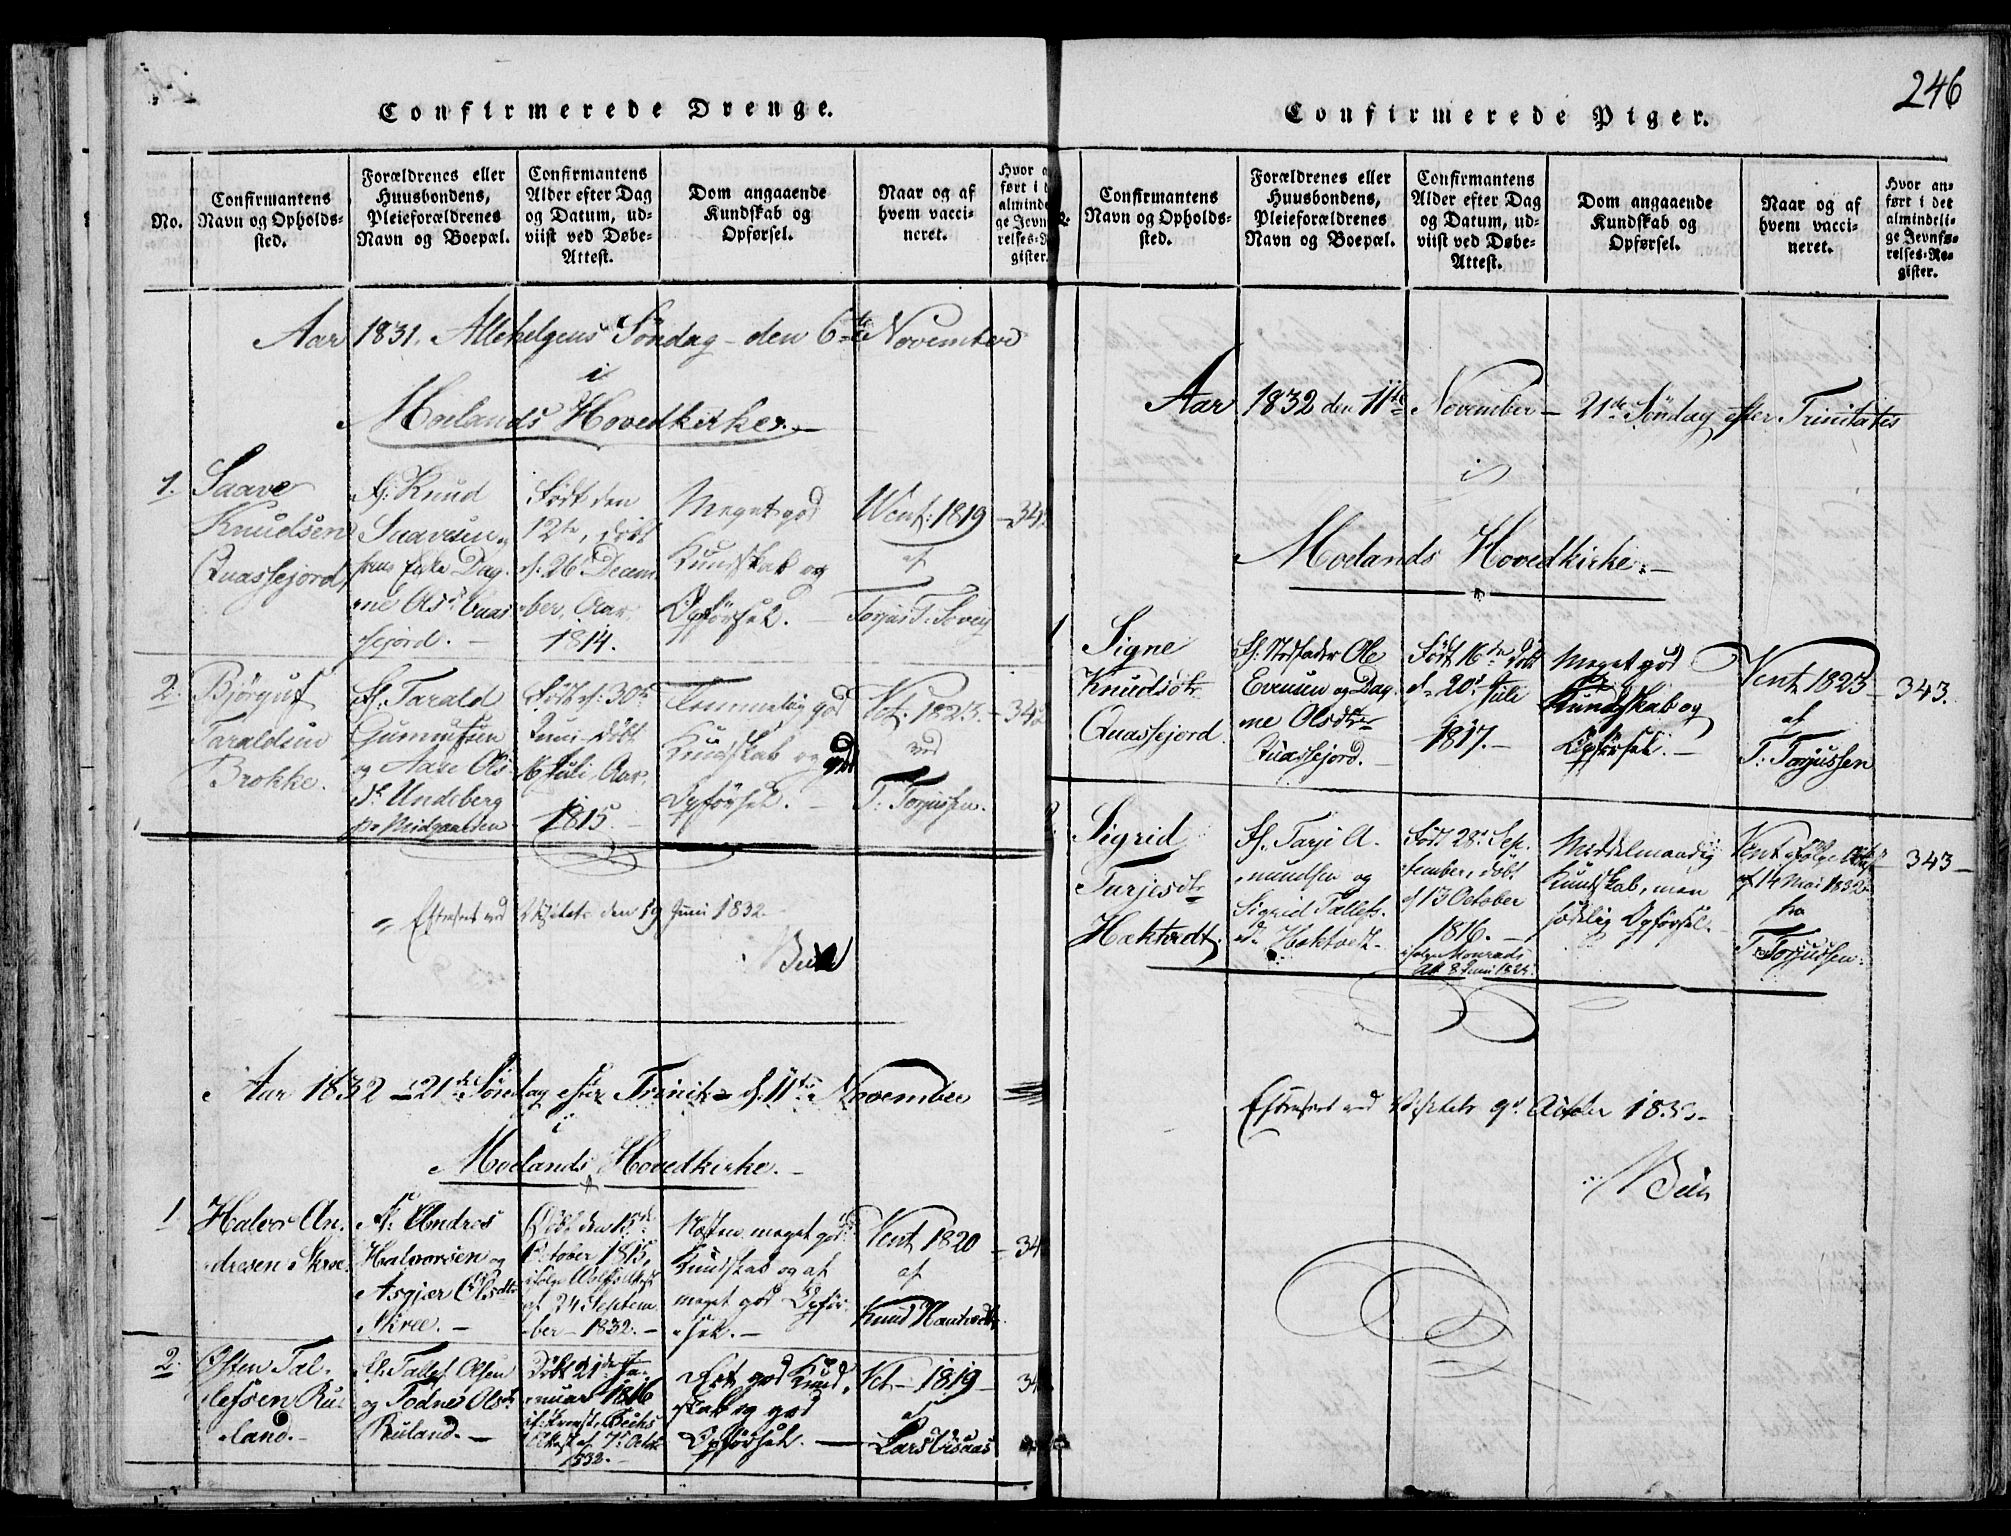 246
Confirmerede Drenge.
No.
Confirmantens
Navn og Opholds-
sted.
Forældrenes eller
Huusbondens,
Pleieforældrenes
Navn og Boepæl.
Confirmantens
Alder efter Dag
og Datum, ud-
viist ved Døbe-
Attest.
Dom angaaende
Kundskab og
Opførsel.
Naar og af
hvem vacci-
neret.
Hvor
ført i
alminde
ge Jevn
relses-
gister.
Aar 1831. Allehelgens Söndag - den 6te November
i
Moelands Hovedkirke. -
1.
Saave
Knudsen
Quassejord
Knud
Saavesen
Enke Dag-
ne Olsd Quas
sejord. -
Födt den
12te, döbt
d. 26 Decem
ber, Aar
1814.
Meget god
Kundskab og
Opförsel. -
Vent: 1819
af
Torjus T.
2.
Björguf
Taraldsen
Brokke.
F. Tarald
Gunnufsen
og Aase Ols
dr Undeberg
Midgaarden
Födt d. 30te
Juni, döbt
Juli, Aar
1815. -
Temmelig god
Kundskab og god
Opförsel. -
Vct. 1823. -
ved
T. Torjussen.
Efterseet ved Visitats den 19 Juni 1832. -
Aar 1832 - 21de Söndag efter Trinit - d. 11te November
i
Moelands Hovedkirke. -
1
Halvor An-
dresen Skree.
F. Andres
Halvorsen og
Asgjær Olsdtr
Skree. -
Döbt den 15de
October 1815,
ifölge Wolfs Attest
af 24 Septem
ber - 1832. -
Næsten meget god
Kundskab og af
meget god Opför-
sel. -
Vent. 1820 -
af
Knud Hantvedt
2.
Östen Tal-
lefsen Ru-
land. -
F. Tallef Olsen
og Todne Olsdr
Ruland. -
Döbt 21de Ja-
nuar 1816
Attest af 7de Octbr
1832. -
Ret god Kund-
skab og god
Opförsel. -
Vct. - 1819 -
af
Lars Visaas
Confirmerede Piger.
Confirmantens
Navn og Opholds-
sted.
Forældrenes eller
Huusbondens,
Pleieforældrenes
Navn og Boepæl.
Confirmantens
Alder efter Dag
og Datum, ud-
viist ved Døbe-
Attest.
Dom angaaende
Kundskab og
Opførsel.
Naar og af
hvem vacci-
neret.
Hvor an-
ført i det
almindeli-
ge Jevnfø-
relses-Re-
gister.
Aar 1832 den 11te November - 21de Söndag efter Trinitatis
i
Moelands Hovedkirke. -
1
Signe
Knudsdtr
Quassejord
F. Stedfader Ole
Evensen og Dag-
ne Olsdtr
Quassejord. -
Födt 16de Döbt
d. 20de Juli
1817. -
Meget god
Kundskab og
Opförsel. -
Vent. 1823 -
af
T. Torjussen
343.
Sigrid
Turjesdtr
Haktvedt.
F. Tarje A-
mundsen og
Sigrid Tallefs-
d. Haktvedt. -
Föd. 28de Sep-
tember, döbt
d 13 October
1816. -
ifölge Monrads
Att. 8 Juni 1825.
Middelmaadig
Kundskab, men
sædelig Opförsel. -
Vent. ifölge Attest
af 14 Mai 1832
fra
T. Torjussen.
343 -
Efterseet ved Visitats 9de October 1833. -